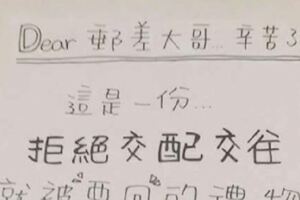 Dear 郵差大哥... 辛苦3
這是一份...
拒絕交配交往
就被要回的禮物